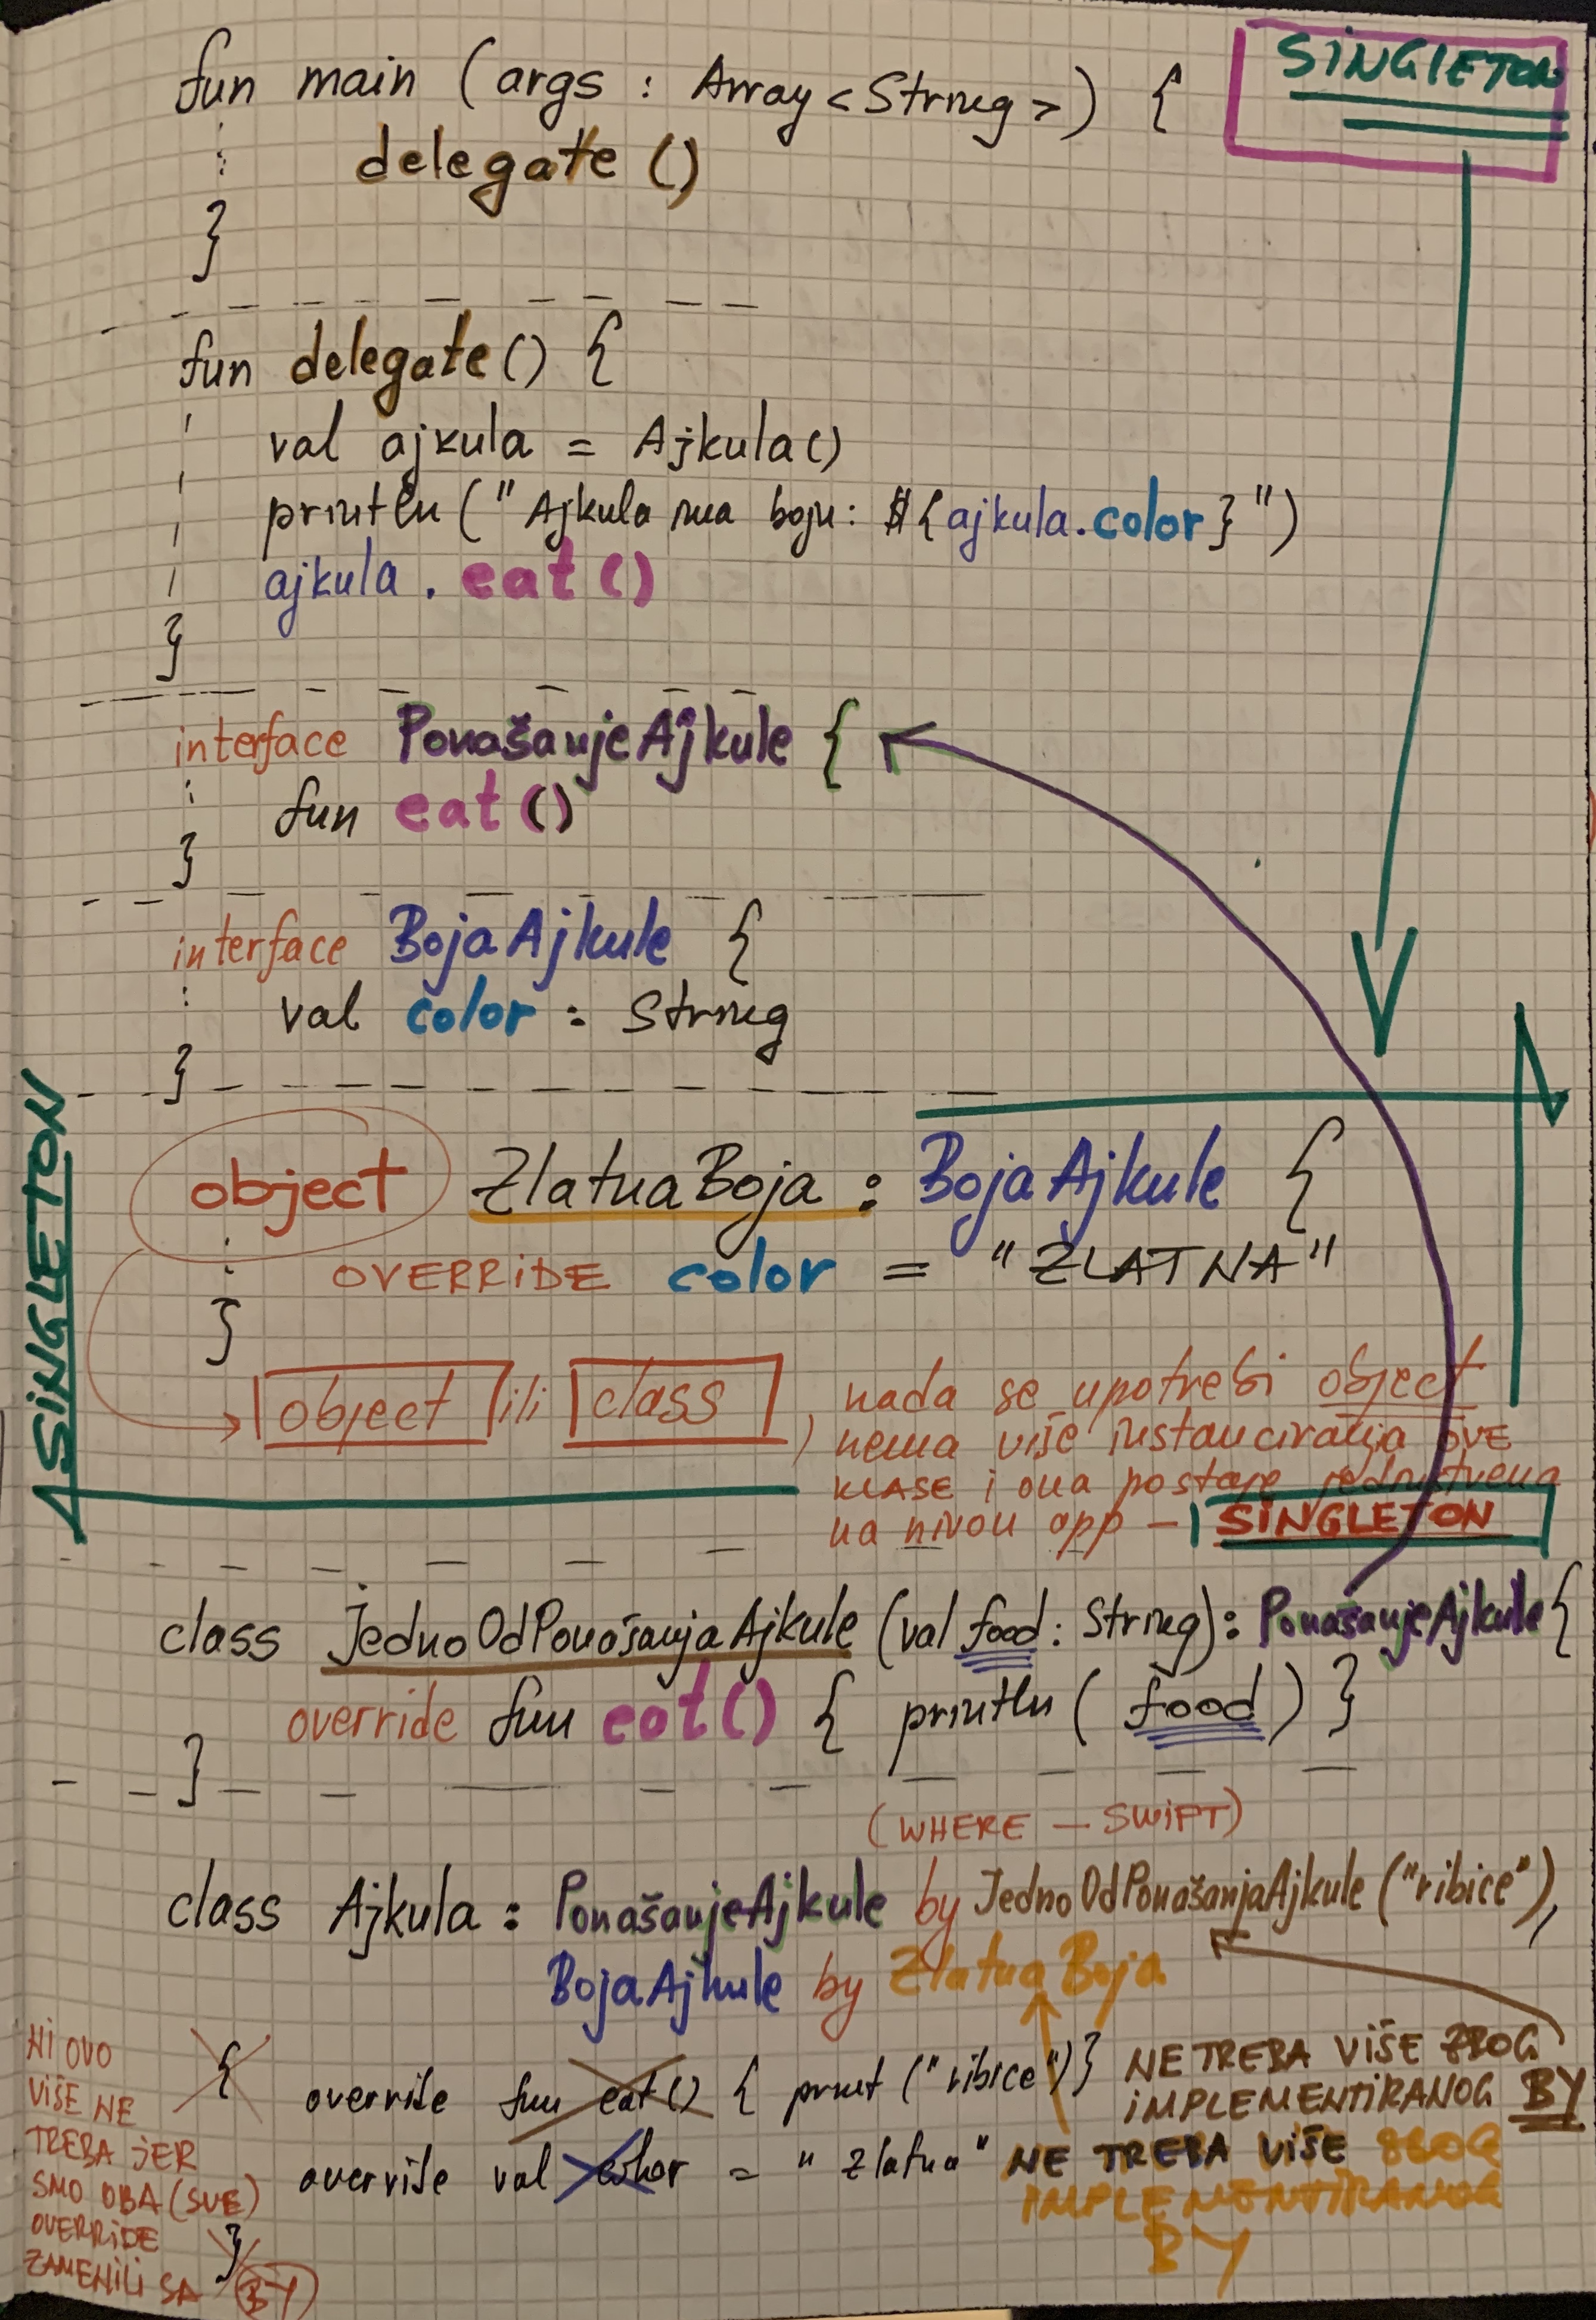 SINGLETON
fun main (args : Array<String>) {
delegate ()
}
fun delegate() {
val ajkula = Ajkula()
println("Ajkula ima boju: ${ajkula.color}")
ajkula.eat()
}
interface PonašanjeAjkule {
fun eat()
}
interface BojaAjkule {
val color : String
}
SINGLETON
object ZlatnaBoja : BojaAjkule {
OVERRIDE color = "ZLATNA"
}
object ili class, kada se upotrebi object
nema više instanciranja OVE
KLASE i ona postaje jedinstvena
na nivou app - SINGLETON
class JednoOdPonašanjaAjkule (val food : String) : PonašanjeAjkule {
override fun eat() { println(food) }
}
(WHERE - SWIFT)
class Ajkula : PonašanjeAjkule by JednoOdPonašanjaAjkule("ribice"),
BojaAjkule by ZlatnaBoja
{ override fun eat() { print("ribice")} NE TREBA VIŠE ZBOG
IMPLEMENTIRANOG BY
override val color = "zlatna" NE TREBA VIŠE ZBOG
IMPLEMENTIRANOG
BY
}
NI OVO
VIŠE NE
TREBA JER
SMO OBA (SVE)
OVERRIDE
ZAMENILI SA BY